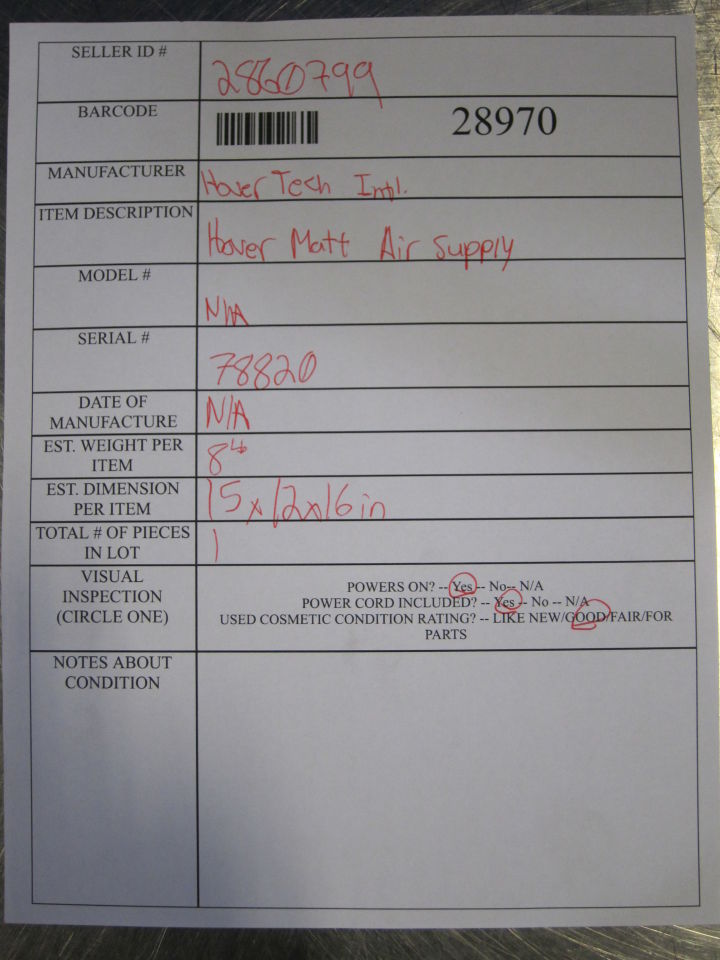 SELLER ID #
2860799
BARCODE
28970
MANUFACTURER
Hover Tech Intl.
ITEM DESCRIPTION
Hover Matt Air Supply
MODEL #
N/A
SERIAL #
78820
DATE OF
MANUFACTURE
N/A
EST. WEIGHT PER
ITEM
8
EST. DIMENSION
PER ITEM
15x12x16in
TOTAL # OF PIECES
IN LOT
1
VISUAL
INSPECTION
(CIRCLE ONE)
POWERS ON? -- Yes -- No-- N/A
POWER CORD INCLUDED? -- Yes -- No -- N/A
USED COSMETIC CONDITION RATING? -- LIKE NEW/GOOD/FAIR/FOR
PARTS
NOTES ABOUT
CONDITION